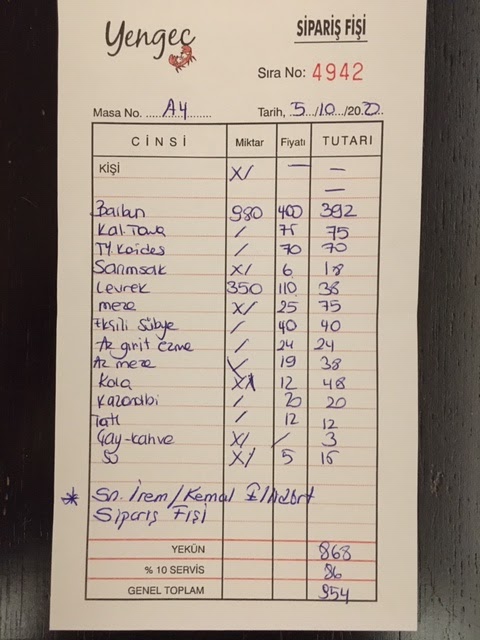 Yengeç
SİPARİŞ FİŞİ
Sıra No: 4942
Masa No. A4 Tarih, 5/10/2020
CİNSİ Miktar Fiyatı TUTARI
KİŞİ X/ — —
—
Balban 980 400 392
Kal.Tava / 75 75
T4 Karides / 70 70
Sarımsak X/ 6 18
Levrek 350 110 38
meze X/ 25 75
Ekşili Sübye / 40 40
Az girit ezme / 24 24
Az meze 19 38
Kola 12 48
Kazandibi / 20 20
Tatlı / 12 12
Çay-kahve X/ / 3
Su X/ 5 15
* Sn. İrem/Kemal
Sipariş Fişi
YEKÜN 868
% 10 SERVİS 86
GENEL TOPLAM 954